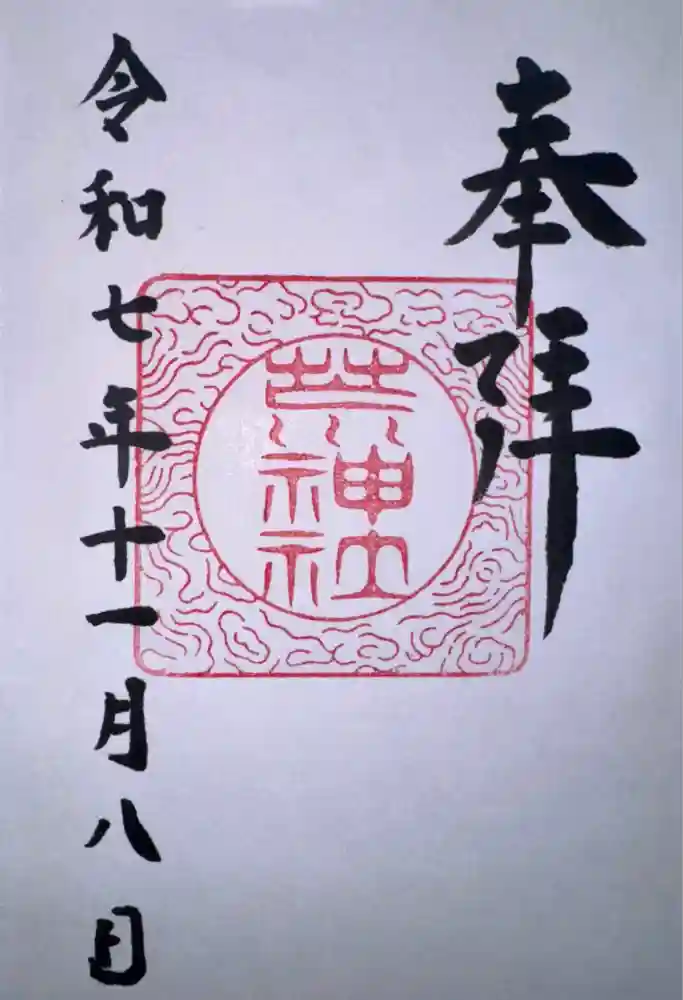 奉拜
荒神社
令和七年十一月八日